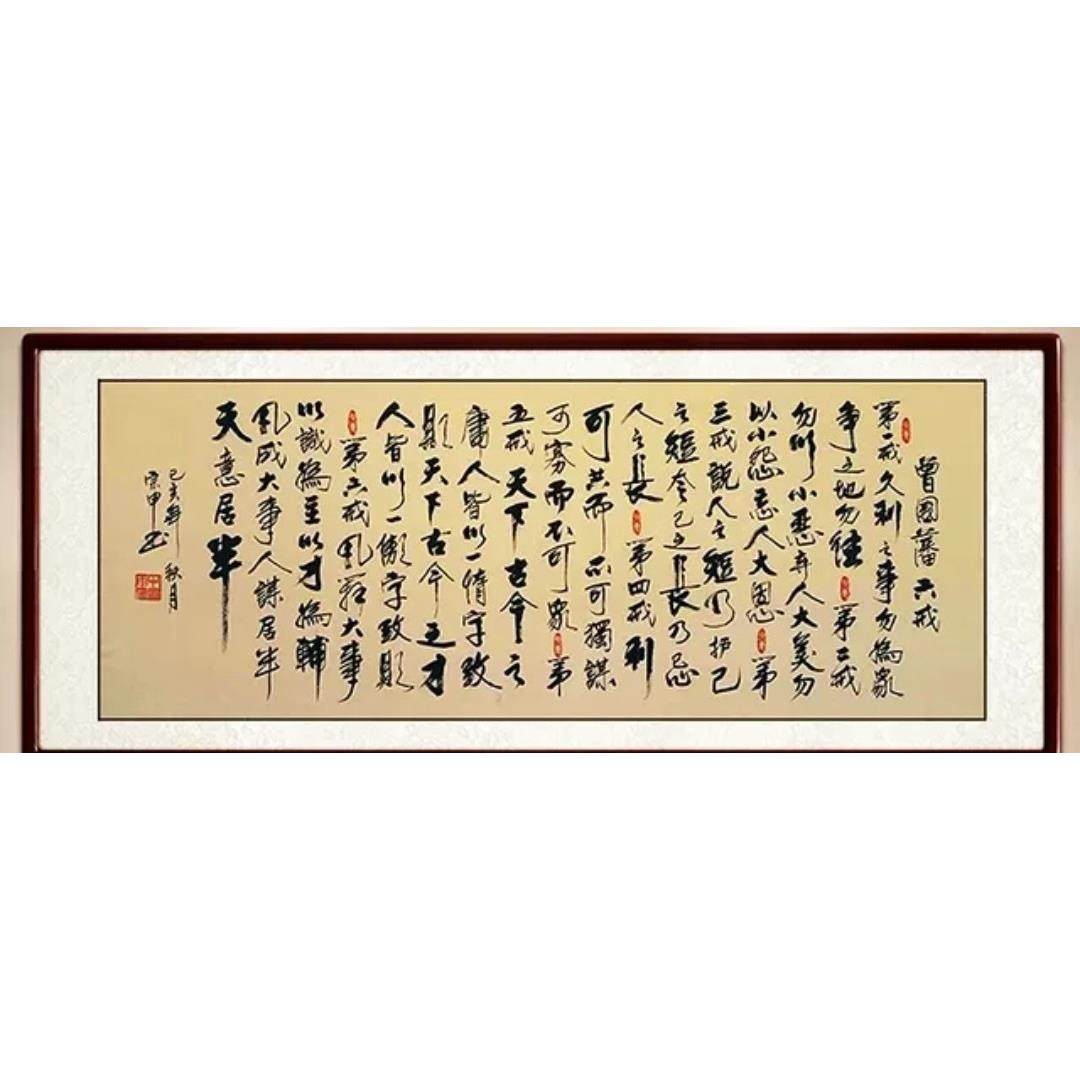 曾國藩六戒
第一戒久利之事勿為眾
爭之地勿往第二戒
勿以小惡弃人大美勿
以小怨忘人大恩第
三戒說人之短乃护己
之短夸己之長乃忌
人之長第四戒利
可共而不可獨謀
可寡而不可眾第
五戒天下古今之
庸人皆以一惰字致
敗天下古今之才
人皆以一傲字致敗
第六戒凡办大事
以識為主以才為輔
凡成大事人謀居半
天意居半
己亥年秋月
宗甲书